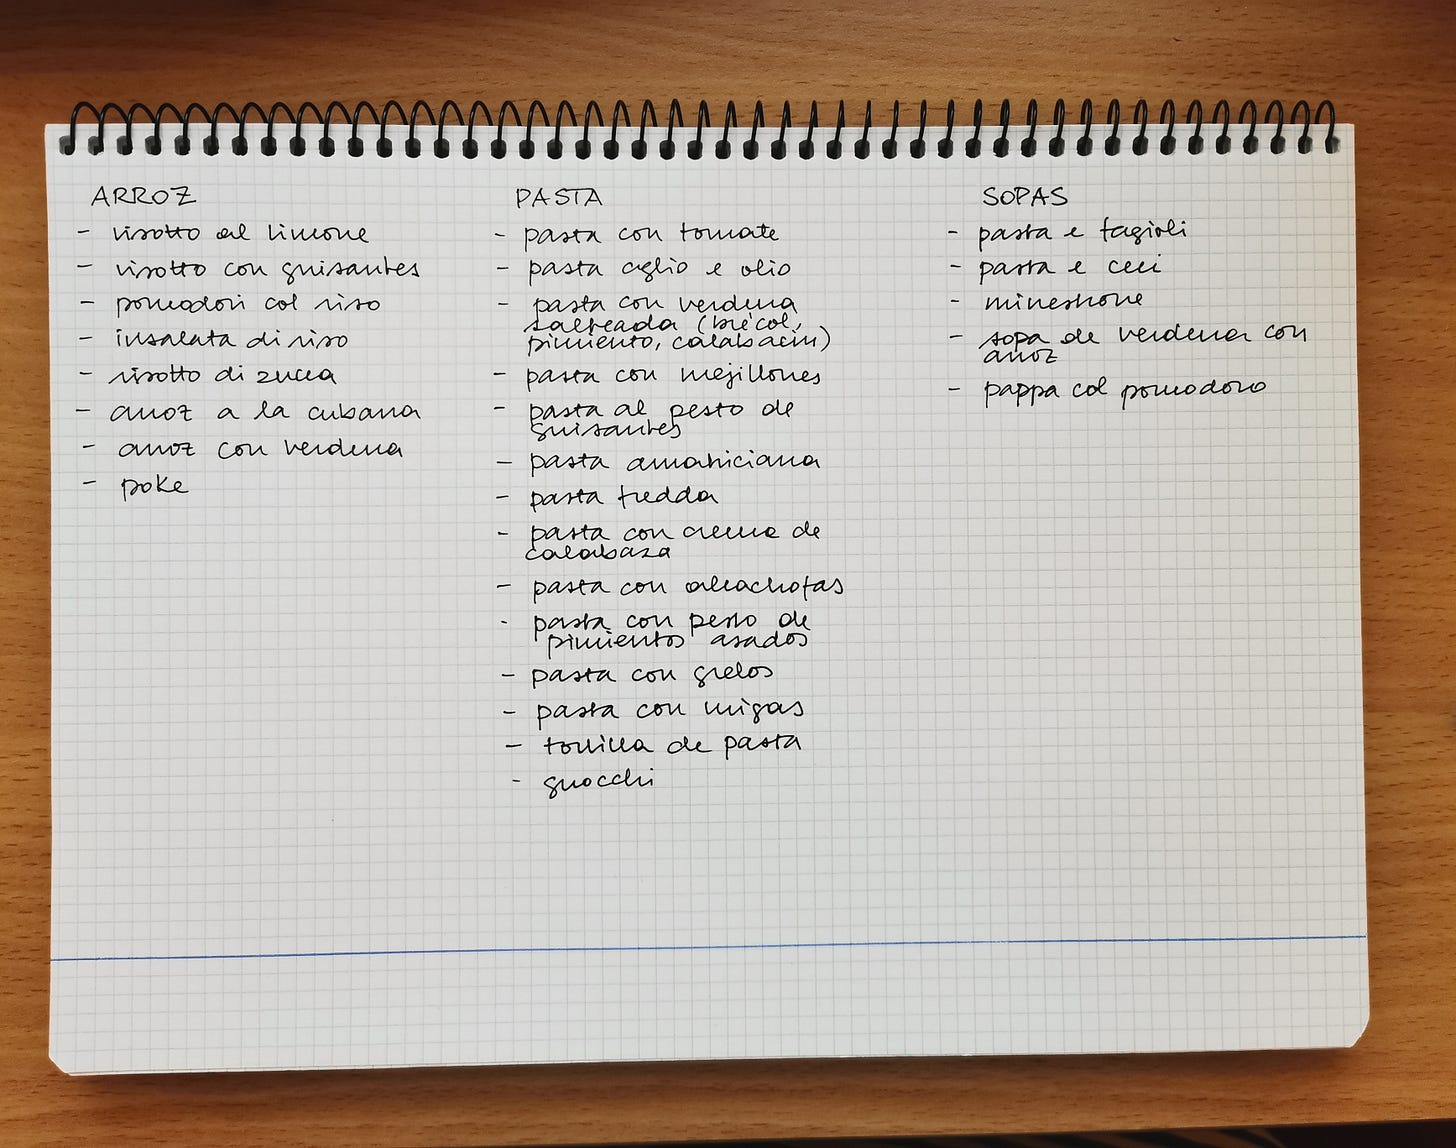 ARROZ
- risotto al limone
- risotto con guisantes
- pomodori col riso
- insalata di riso
- risotto di zucca
- arroz a la cubana
- arroz con verdura
- poke
PASTA
- pasta con tomate
- pasta aglio e olio
- pasta con verdura
salteada (brécol,
pimiento, calabacín)
- pasta con mejillones
- pasta al pesto de
guisantes
- pasta amatriciana
- pasta fredda
- pasta con crema de
calabaza
- pasta con alcachofas
- pasta con pesto de
pimientos asados
- pasta con grelos
- pasta con migas
- tortilla de pasta
- gnocchi
SOPAS
- pasta e fagioli
- pasta e ceci
- minestrone
- sopa de verdura con
arroz
- pappa col pomodoro